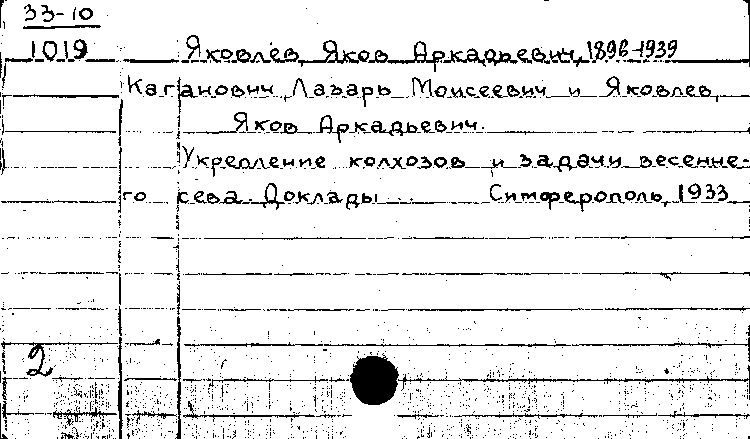 33-10
1019 Яковлев, Яков Аркадьевич, 1896-1939
Каганович, Лазарь Моисеевич и Яковлев,
Яков Аркадьевич.
Укрепление колхозов и задачи весенне-
го сева. Доклады ... Симферополь, 1933
2